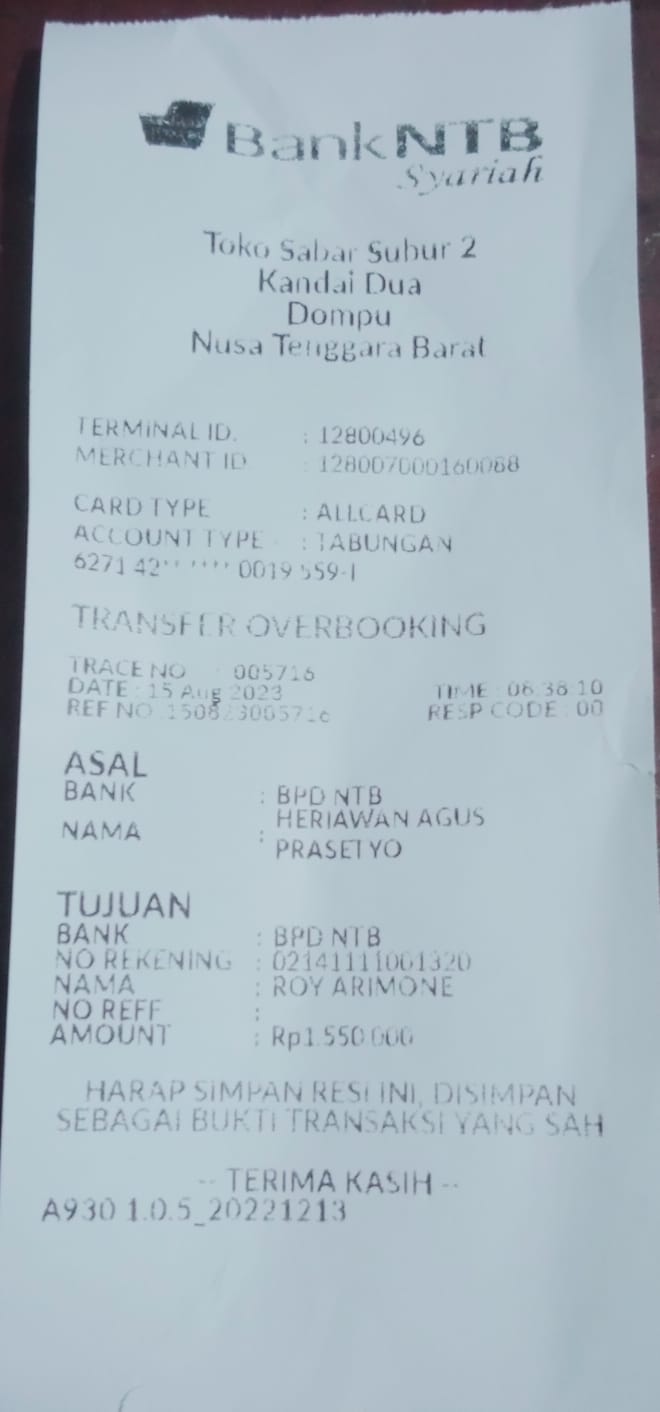 BankNTB
Syariah
Toko Sabar Subur 2
Kandai Dua
Dompu
Nusa Tenggara Barat
TERMINAL ID. : 12800496
MERCHANT ID : 128007000160068
CARD TYPE : ALLCARD
ACCOUNT TYPE : TABUNGAN
6271 42** **** 0019 559-I
TRANSFER OVERBOOKING
TRACE NO : 005716
DATE : 15 Aug 2023 TIME : 06:38:10
REF NO : 150823005716 RESP CODE : 00
ASAL
BANK : BPD NTB
NAMA : HERIAWAN AGUS
PRASETYO
TUJUAN
BANK : BPD NTB
NO REKENING : 02141111001320
NAMA : ROY ARIMONE
NO REFF :
AMOUNT : Rp1.550.000
HARAP SIMPAN RESI INI, DISIMPAN
SEBAGAI BUKTI TRANSAKSI YANG SAH
-- TERIMA KASIH --
A930 1.0.5_20221213